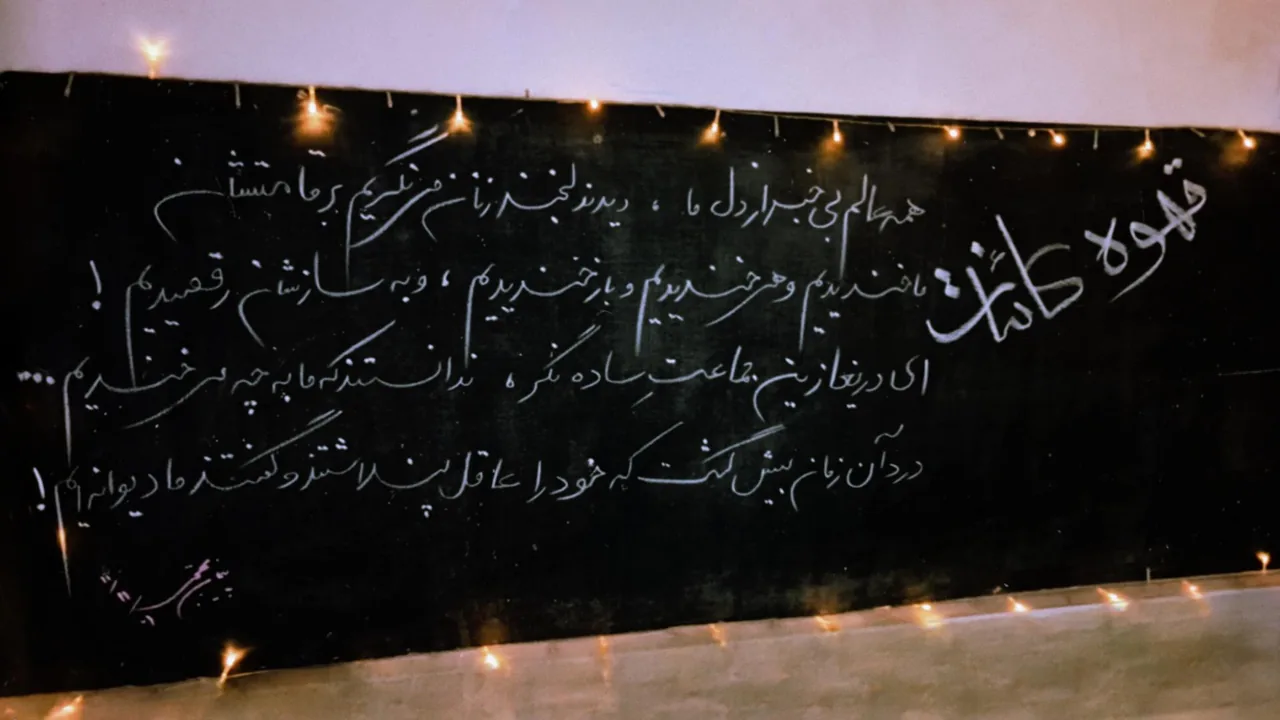 قهوه کائنات
همه عالم بی خبر از دل ما ، دیدند لبخند زنان می نگریم بر قامتشان
ما خندیدیم و هی خندیدیم و باز خندیدیم ، و به سازشان رقصیدیم !
ای دریغا زین جماعتِ ساده نگر ، ندانستند که ما به چه می خندیدیم ...
درد آن زمان بیش گشت که خود را عاقل پنداشتند و گفتند ما دیوانه ایم !